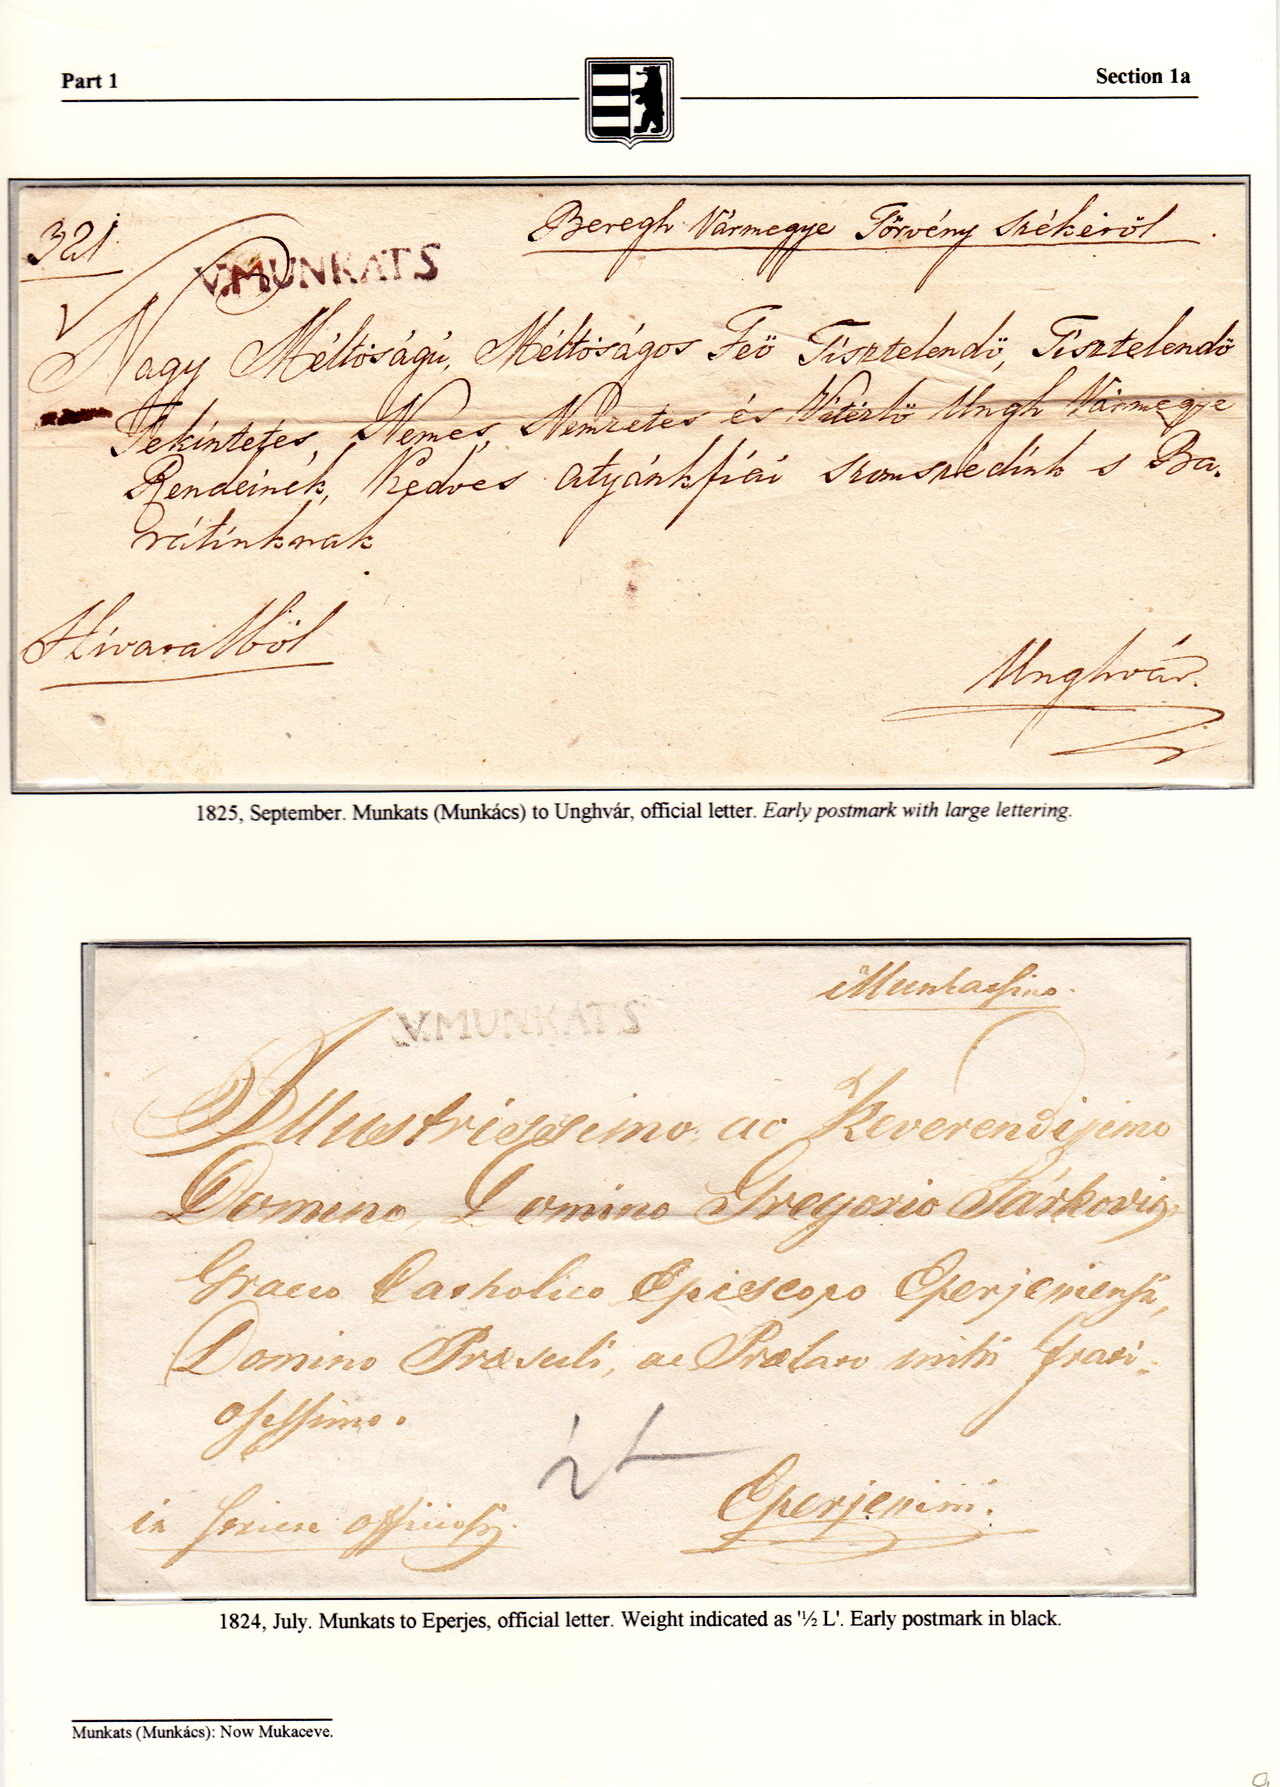 Part 1
Section 1a
321.
Beregh Vármegye Törvény Székéröl
V.MUNKATS
Nagy Méltóságú, Méltóságos Feö Tisztelendö, Tisztelendö
Tekíntetes, Nemes, Nemzetes és Vitézlö Ungh Vármegye
Rendeinek, Kedves atyánkfiai szomszédínk s Ba-
rátínknak
Hívatalból
Unghvár.
1825, September. Munkats (Munkács) to Unghvár, official letter. Early postmark with large lettering.
V.MUNKATS
Illustrissimo ac Reverendissimo
Domino, Domino Gregorio Tárkovits
Graeco Catholico Episcopo Eperjessiensi,
Domino Praesuli, ac Praelato mihi Grati-
osissimo.
½ L
in officiosis
Eperjessini.
1824, July. Munkats to Eperjes, official letter. Weight indicated as '½ L'. Early postmark in black.
Munkats (Munkács): Now Mukaceve.